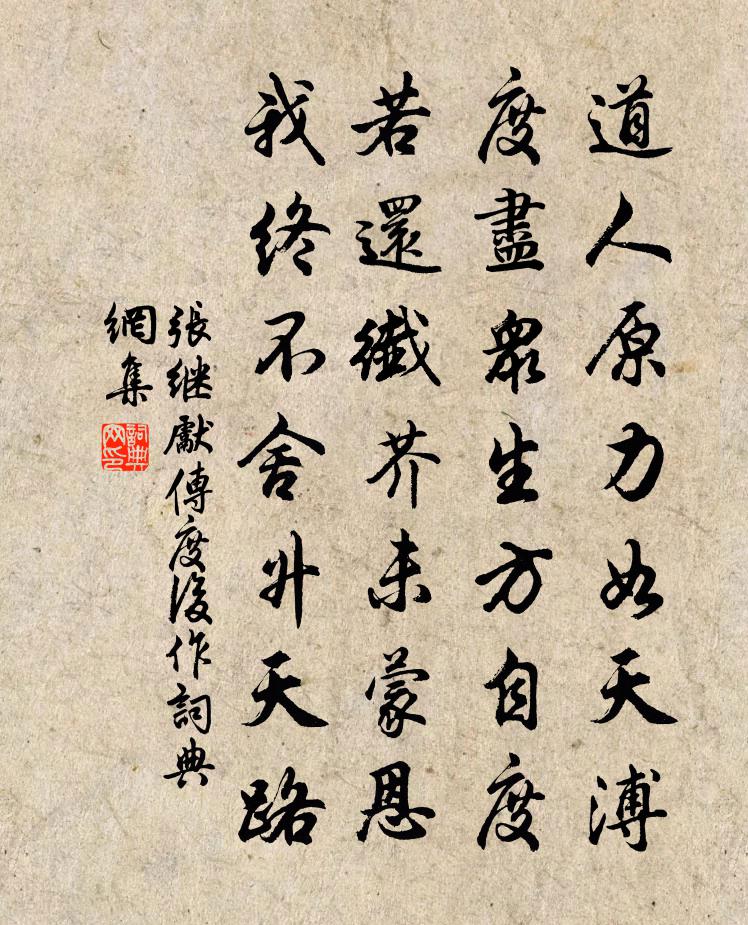 道人原力如天溥
度盡眾生方自度
若還纖芥未蒙恩
我終不舍升天路
張继獻傳度後作詞典
網集
詞典網印